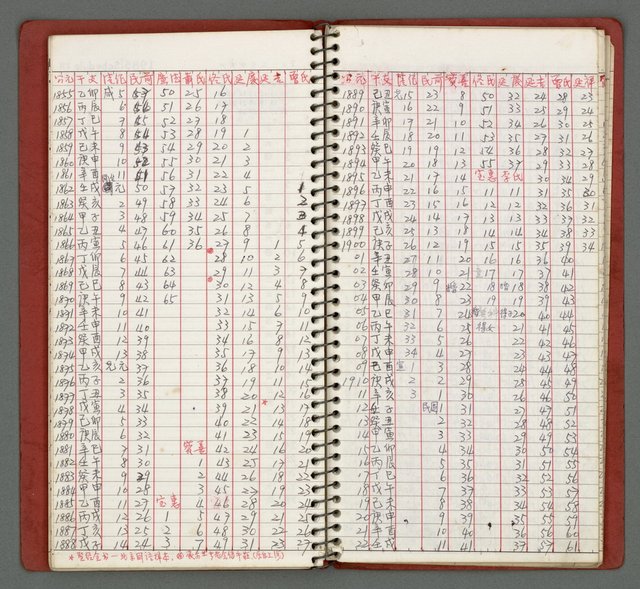 公元 干支 民前 黃氏 氏 延展 延老 曹氏
1855 乙卯 咸5 57 50 25 16
1856 丙辰 6 56 51 26 17
1857 丁巳 7 55 52 27 18
1858 戊午 8 54 53 28 19 1
1859 己未 9 53 54 29 20 2
1860 庚申 10 52 55 30 21 3
1861 辛酉 11 51 56 31 22 4
1862 壬戌 元 50 57 32 23 5 1
1863 癸亥 2 49 58 33 24 6 2
1864 甲子 3 48 59 34 25 7 3
1865 乙丑 4 47 60 35 26 8 4
1866 丙寅 5 46 61 36 27 9 1 5
1867 丁卯 6 45 62 28 10 2 6
1868 戊辰 7 44 63 29 11 3 7
1869 己巳 8 43 64 30 12 4 8
1870 庚午 9 42 65 31 13 5 9
1871 辛未 10 41 32 14 6 10
1872 壬申 11 40 33 15 7 11
1873 癸酉 12 39 34 16 8 12
1874 甲戌 13 38 35 17 9 13
1875 乙亥 光元 37 36 18 10 14
1876 丙子 2 36 37 19 11 15
1877 丁丑 3 35 38 20 12 16
1878 戊寅 4 34 39 21 13 17
1879 己卯 5 33 40 22 14 18
1880 庚辰 6 32 41 23 15 19
1881 辛巳 7 31 寶善 42 24 16 20
1882 壬午 8 30 1 43 25 17 21
1883 癸未 9 29 2 44 26 18 22
1884 甲申 10 28 3 45 27 19 23
1885 乙酉 11 27 宝惠 4 46 28 20 24
1886 丙戌 12 26 1 5 47 29 21 25
1887 丁亥 13 25 2 6 48 30 22 26
1888 戊子 14 24 3 7 49 31 23 27
公元 干支 民前 寶善 氏 延展 延老 曹氏
1889 己丑 光15 23 8 50 32 24 28 23
1890 庚寅 16 22 9 51 33 25 29 24
1891 辛卯 17 21 10 52 34 26 30 25
1892 壬辰 18 20 11 53 35 27 31 26
1893 癸巳 19 19 12 54 36 28 32 27
1894 甲午 20 18 13 55 37 29 33 28
1895 乙未 21 17 14 宝惠 李氏 30 34 29
1896 丙申 22 16 15 11 11 31 35 30
1897 丁酉 23 15 16 12 12 32 36 31
1898 戊戌 24 14 17 13 13 33 37 32
1899 己亥 25 13 18 14 14 34 38 33
1900 庚子 26 12 19 15 15 35 39 34
01 辛丑 27 11 20 16 16 36 40
02 壬寅 28 10 21 17 17 37 41
03 癸卯 29 9 22 18 18 38 42
04 甲辰 30 8 23 19 19 39 43
05 乙巳 31 7 24 20 40 44
06 丙午 32 6 25 21 41 45
07 丁未 33 5 26 22 42 46
08 戊申 34 4 27 23 43 47
09 己酉 宣1 3 28 24 44 48
1910 庚戌 2 2 29 25 45 49
11 辛亥 3 1 30 26 46 50
12 壬子 民國1 31 27 47 51
13 癸丑 2 32 28 48 52
14 甲寅 3 33 29 49 53
15 乙卯 4 34 30 50 54
16 丙辰 5 35 31 51 55
17 丁巳 6 36 32 52 56
18 戊午 7 37 33 53 57
19 己未 8 38 34 54 58
20 庚申 9 39 35 55 59
21 辛酉 10 40 36 56 60
22 壬戌 11 41 37 57 61